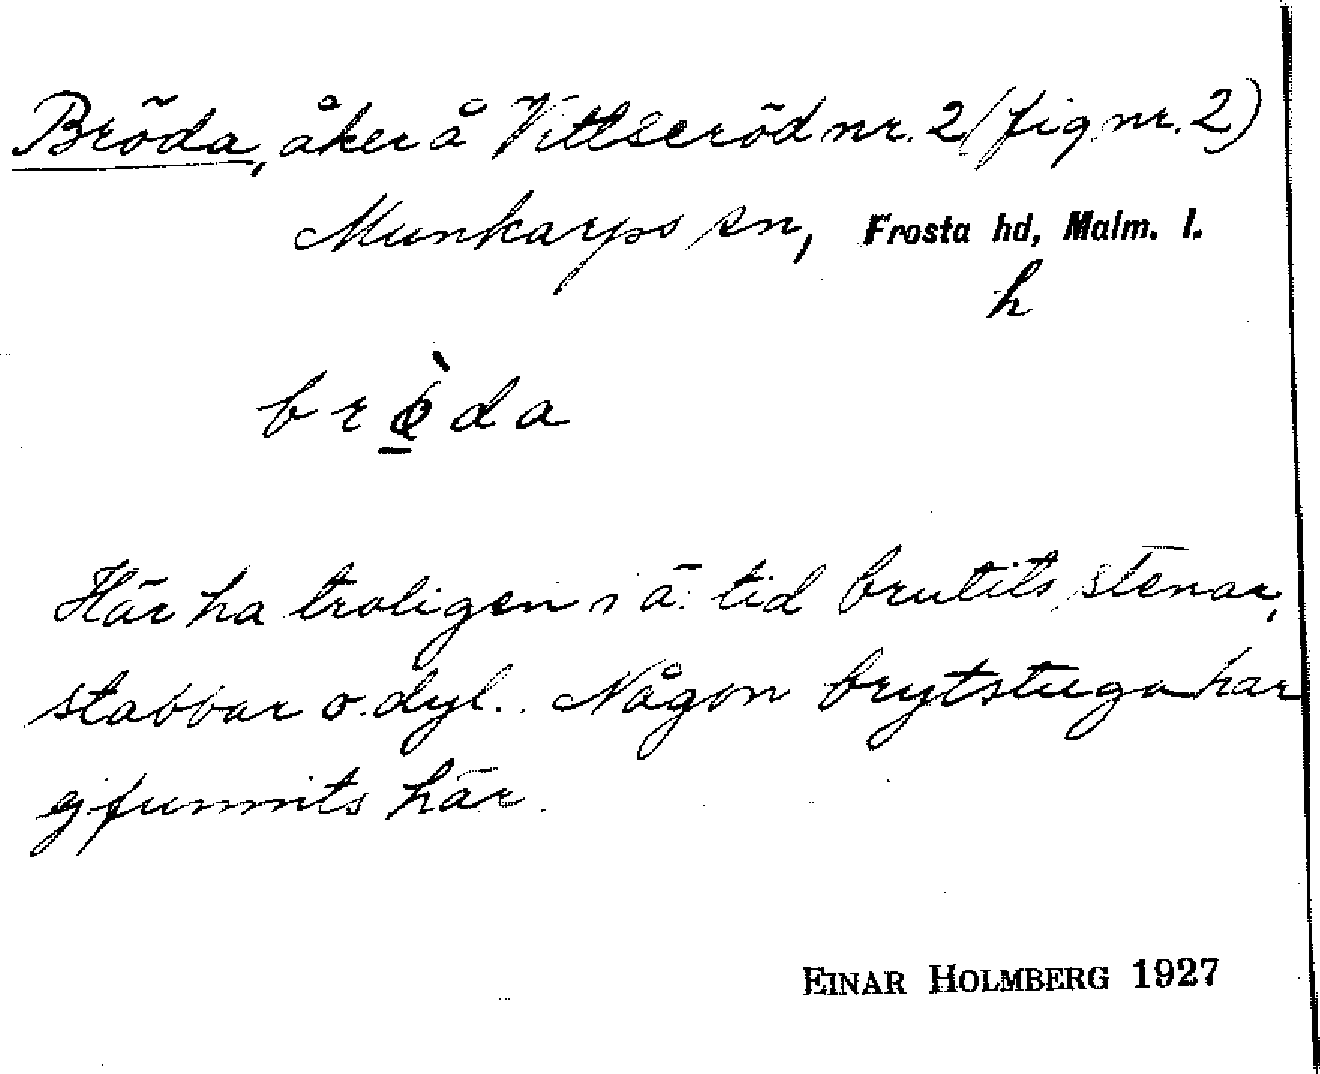 Bröda, åker å Vittseröd nr. 2 (fig. nr. 2)
Munkarps sn, Frosta hd, Malm. l.
h
brø̀da
Här ha troligen i ä. tid brutits stenar,
stabbar o. dyl. Någon brytstuga har
ej funnits här.
EINAR HOLMBERG 1927